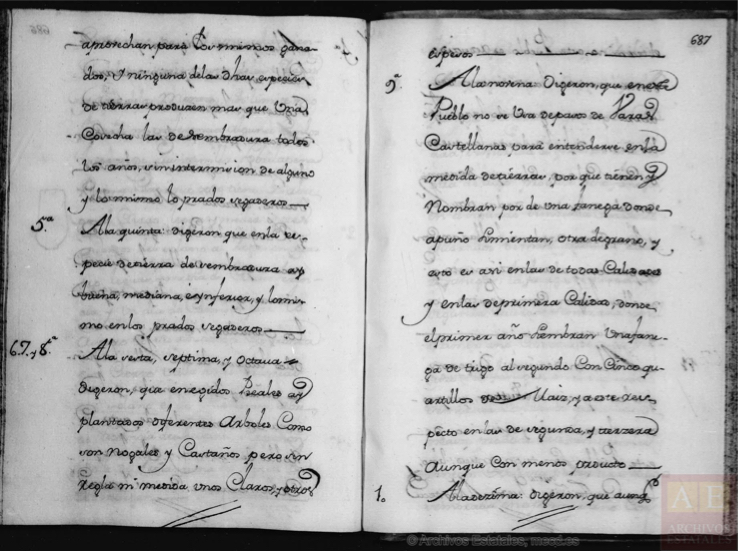 aprovechan para los mismos gana-
dos, y ninguna delas dhas especies
de tierras producen mas que Una
Cosecha las de sembradura todos
los años, sin intermision de alguno
y lo mismo lo prados segaderos
5.ª
Ala quinta: digeron que enla es-
pecie detierra de sembradura ay
buena, mediana, é ynferior, y lomis-
mo enlos prados segaderos
6.7.y 8.ª
Ala sesta, septima, y Octava
digeron, que en egidos Reales ay
plantados diferentes Arboles Como
son Nogales y Castaños pero sin
regla ni medida unos Claros, y otros
687
espesos
9.ª
Ala novena Digeron, que eneste
Pueblo no se Usa depasos de Varas
Castellanas para entenderse enla
medida detierras, por que tienen y
Nombran por de una fanega donde
apuño simientan, otra degrano, y
esto es asi enlas de todas Calidades
y enlas deprimera Calidad, donde
elprimer año siembran Unafane-
ga de trigo al segundo Con Cinco qu-
artillos de Maiz, y a este res-
pecto enlas de segunda, y terzera
Aunque Con menos producto
1.
Aladezima: digeron, que aung
AE
ARCHIVOS
ESTATALES
© Archivos Estatales, mecd.es